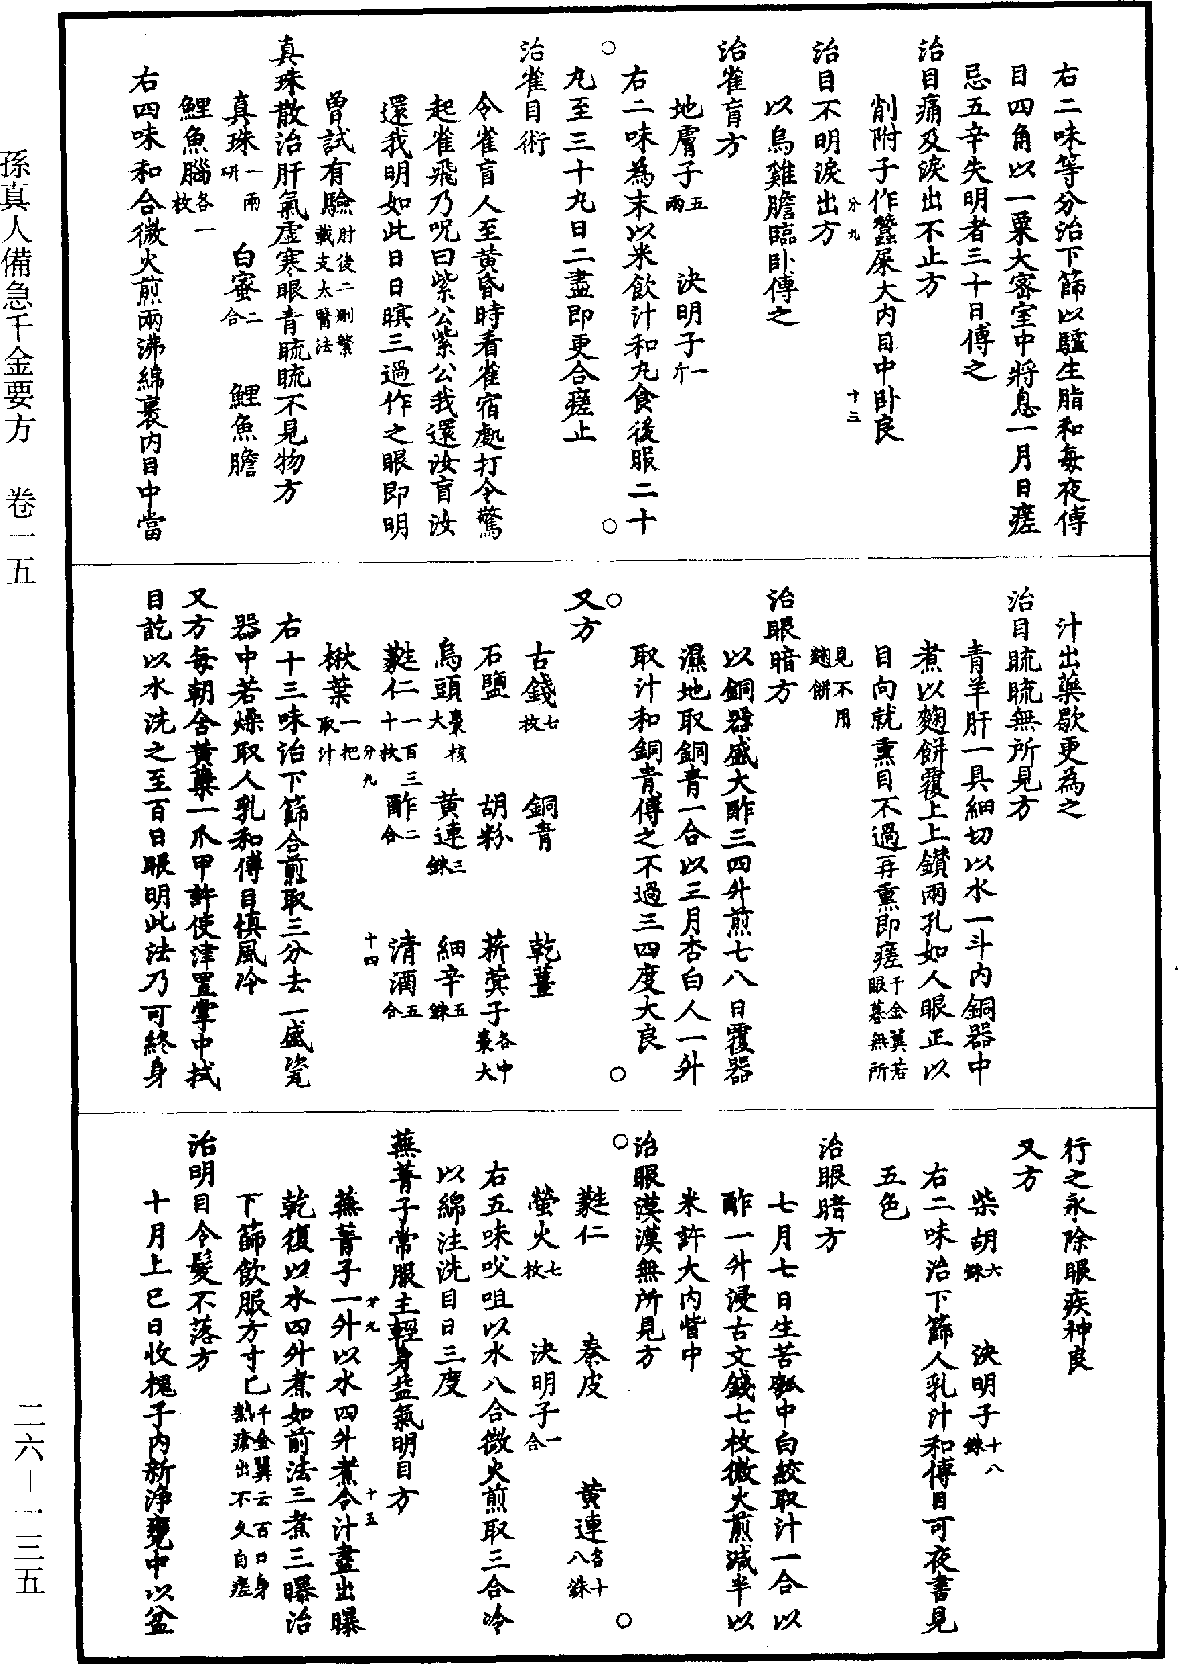 孫真人備急千金要方　卷一五
右二味等分治下篩以驢生脂和每夜傅
目四角以一粟大密室中將息一月日瘥
忌五辛失明者三十日傅之
治目痛及淚出不止方
削附子作蠶屎大內目中卧良
分九　十三
治目不明淚出方
以烏雞膽臨卧傅之
治雀盲方
地膚子五兩　決明子一斤
右二味為末以米飲汁和丸食後服二十
丸至三十丸日二盡即更合瘥止
治雀目術
令雀盲人至黃昏時看雀宿處打令驚
起雀飛乃呪曰紫公紫公我還汝盲汝
還我明如此日日暝三過作之眼即明
曾試有驗肘後二刪繁載支太醫法
真珠散治肝氣虛寒眼青䀮䀮不見物方
真珠一兩研　白蜜二合　鯉魚膽
鯉魚腦各一枚
右四味和合微火煎兩沸綿裹內目中當
汁出藥歇更為之
治目䀮䀮無所見方
青羊肝一具細切以水一斗內銅器中
煮以麴餅覆上上鑽兩孔如人眼正以
目向就熏目不過再熏即瘥千金翼若眼暮無所
見不用麴餅
治眼暗方
以銅器盛大酢三四升煎七八日覆器
濕地取銅青一合以三月杏白人一升
取汁和銅青傅之不過三四度大良
又方
古錢七枚　銅青　乾薑
石鹽　胡粉　菥蓂子各中棗大
烏頭棗核大　黃連三銖　細辛五銖
蕤仁一百三十枚　酢二合　清酒五合
楸葉一把取汁
分九　十四
右十三味治下篩合煎取三分去一盛瓷
器中若燥取人乳和傅目慎風冷
又方每朝含黃蘗一爪甲許使津置掌中拭
目訖以水洗之至百日眼明此法乃可終身
行之永除眼疾神良
又方
柴胡六銖　決明子十八銖
右二味治下篩人乳汁和傅目可夜書見
五色
治眼暗方
七月七日生苦瓠中白絞取汁一合以
酢一升浸古文錢七枚微火煎減半以
米許大內眥中
治眼漠漠無所見方
蕤仁　秦皮　黃連各十八銖
螢火七枚　決明子一合
右五味㕮咀以水八合微火煎取三合冷
以綿注洗目日三度
蕪菁子常服主輕身益氣明目方
分九　十五
蕪菁子一升以水四升煮令汁盡出曝
乾復以水四升煮如前法三煮三曝治
下篩飲服方寸匕千金翼云百日身熱瘡出不久自瘥
治明目令髮不落方
十月上巳日收槐子內新淨甕中以盆
二六－一三五